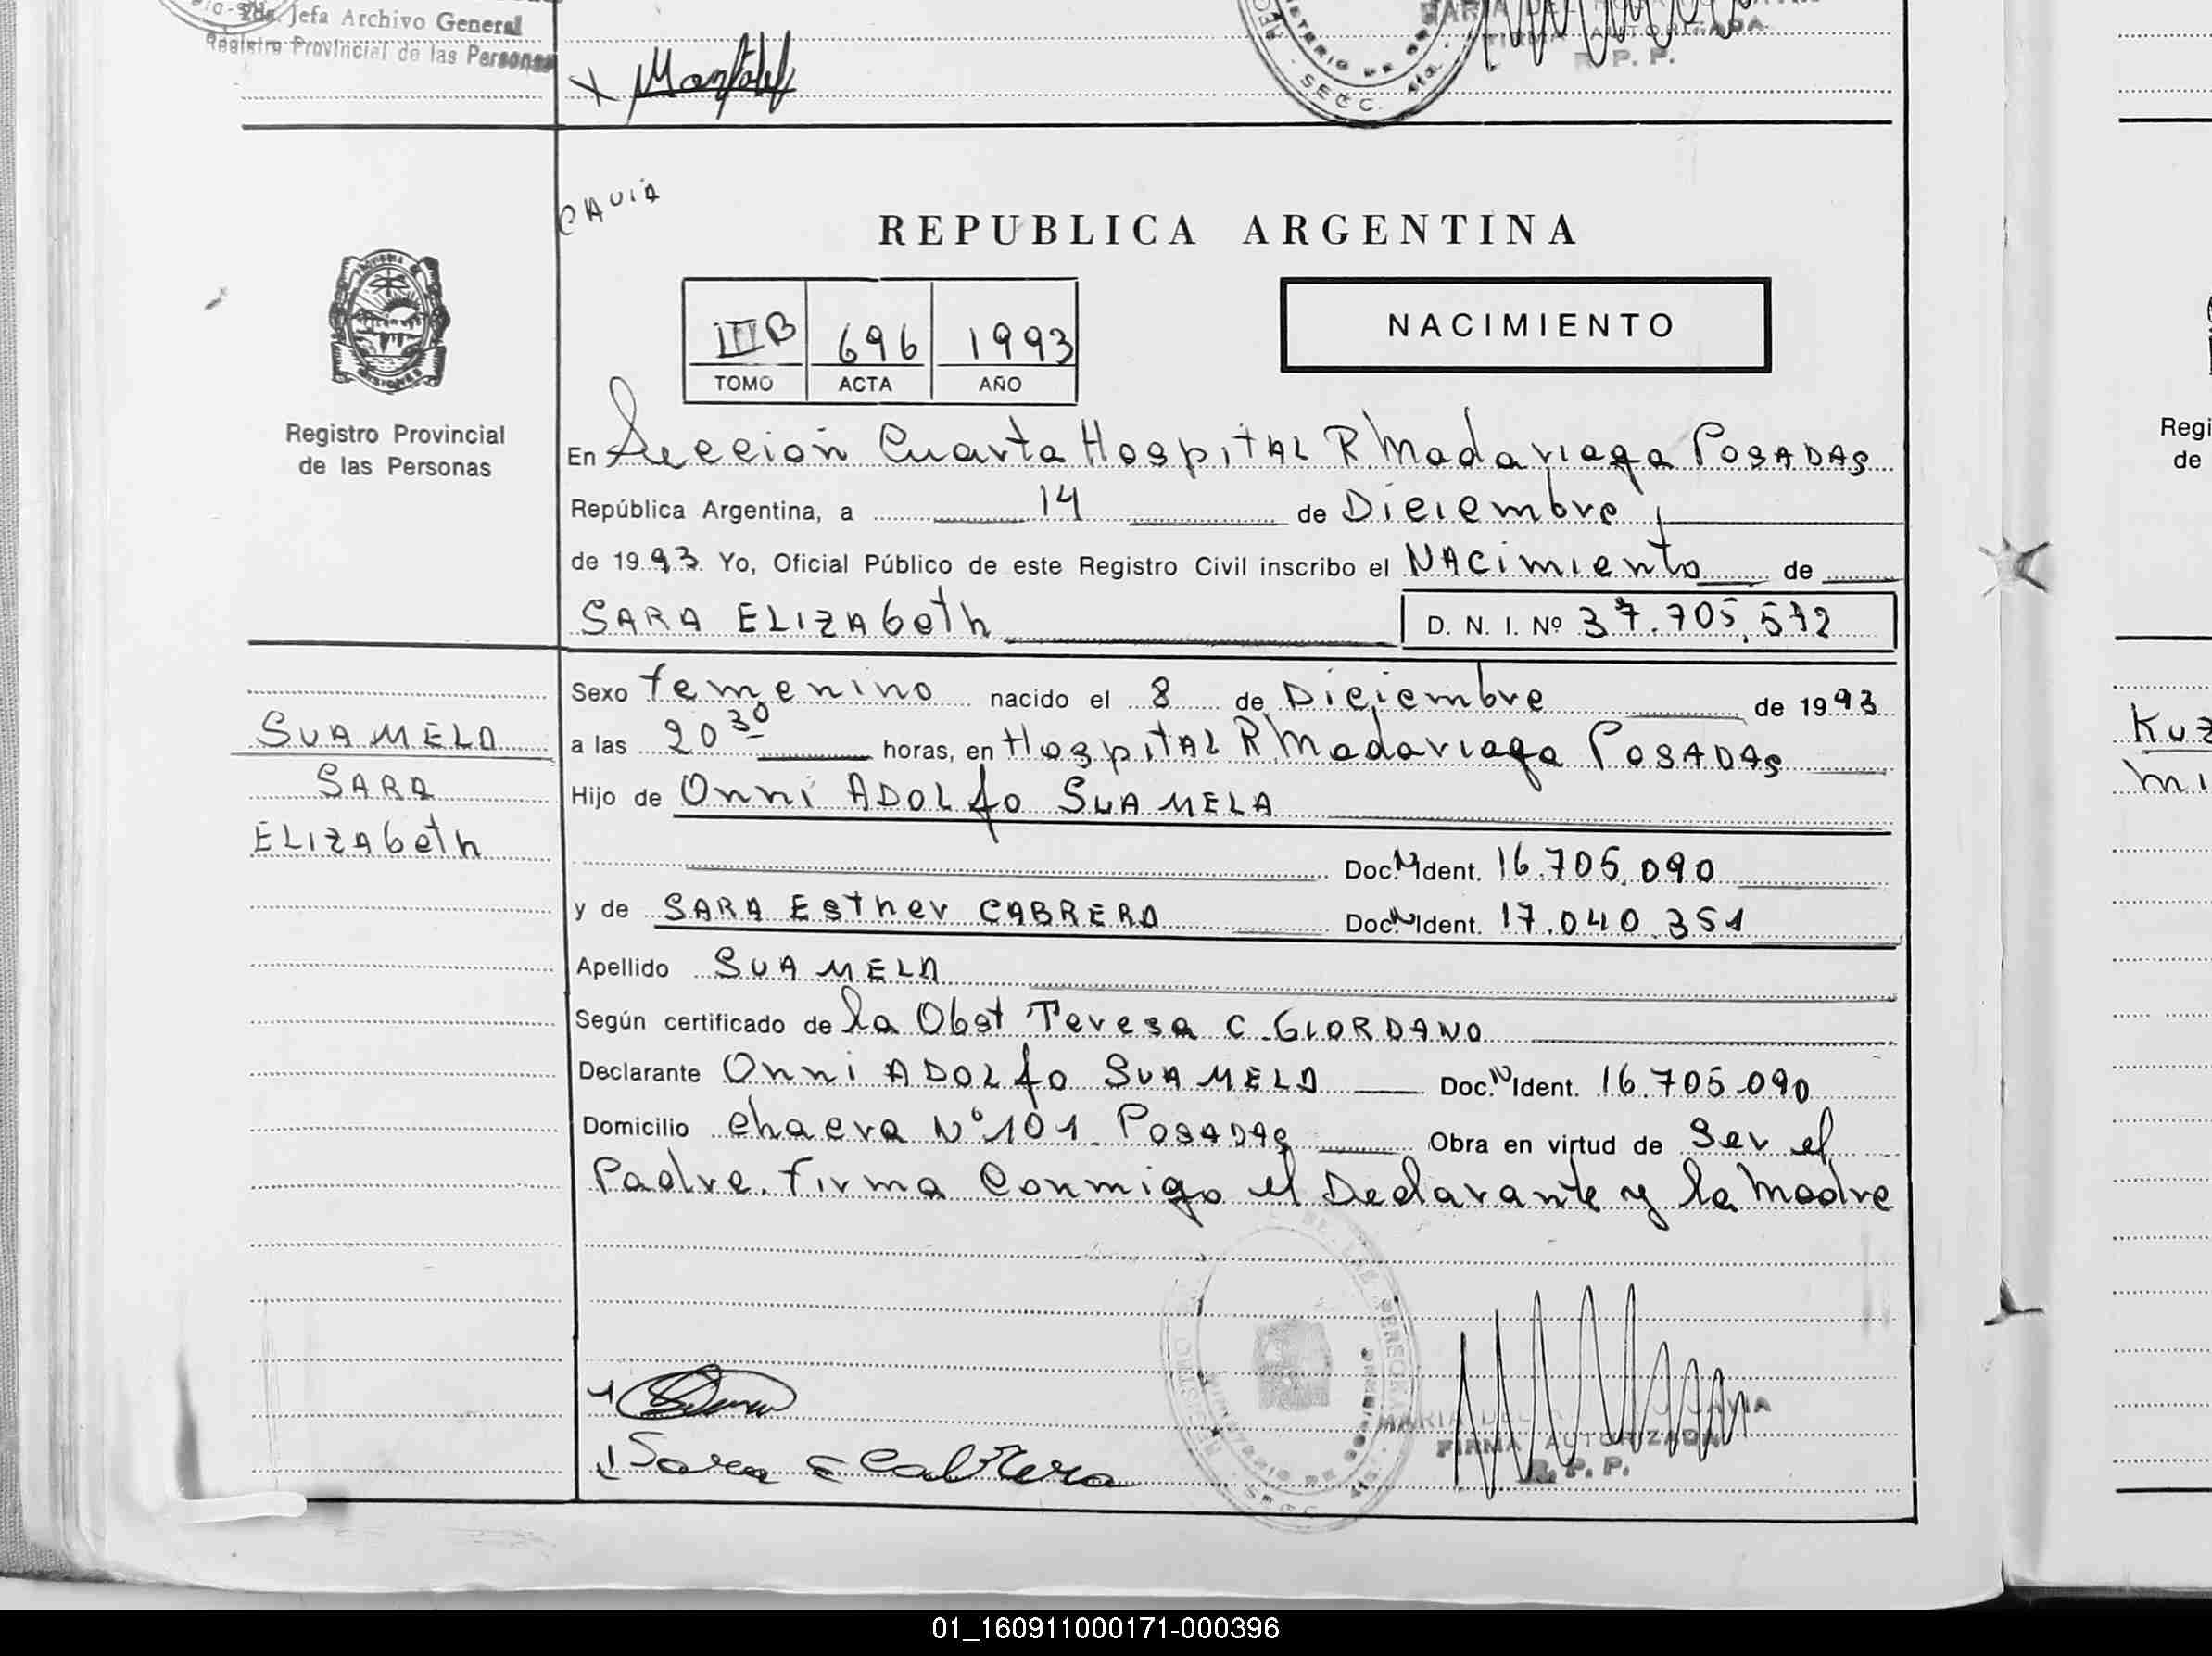 2da. Jefa Archivo General
Registro Provincial de las Personas
SECC.
FIRMA AUTORIZADA
R. P. P.
CAVIA
REPUBLICA ARGENTINA
IIIB 696 1993
TOMO ACTA AÑO
NACIMIENTO
Registro Provincial
de las Personas
En Seccion Cuarta Hospital R Madariaga Posadas
República Argentina, a 14 de Diciembre
de 1993 Yo, Oficial Público de este Registro Civil inscribo el Nacimiento de
SARA ELIZAbeth
D. N. I. Nº 37.705.512
Sexo femenino nacido el 8 de Diciembre de 1993
a las 20 30 horas, en Hospital R Madariaga Posadas
Hijo de Onni ADOLfo SUAMELA
Doc. N Ident. 16.705.090
y de SARA Esther CABRERA Doc. N Ident. 17.040.351
Apellido SUAMELA
Según certificado de la Obst Teresa C. GIORDANO
Declarante Onni ADOLfo SUAMELA Doc. N Ident. 16.705.090
Domicilio chacra Nº 101 Posadas Obra en virtud de Ser el
Padre. firma Conmigo el Declarante y la Madre
SUAMELA
SARA
ELIZAbeth
Sara E Cabrera
MARIA DEL CAVIA
FIRMA AUTORIZADA
R. P. P.
Regi
de
Kuz
Mi
01_160911000171-000396